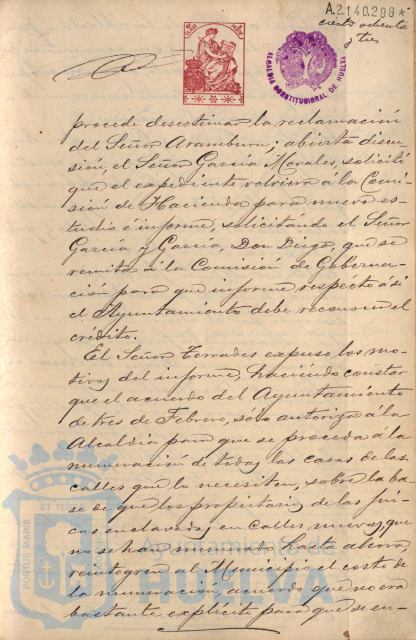 A.2.140.298*
ciento ochenta
y tres
ALCALDIA CONSTITUCIONAL DE HUELVA
procede desestimar la reclamación
del Señor Aramburu; abierta discu-
sión, el Señor García Morales, solicitó
que el expediente volviera á la Comi-
sión de Hacienda para nuevo es-
tudio é informe, solicitándo el Señor
García y García, Don Diego, que se
remita á la Comisión de Goberna-
ción para que informe respecto á si
el Ayuntamiento debe reconocer el
crédito.
El Señor Terrades expuso los mo-
tivos del informe, haciéndo constar
que el acuerdo del Ayuntamiento
de tres de Febrero, sólo autoriza á la
Alcaldía para que se proceda á la
numeración de todas las casas de las
calles que lo necesiten, sobre la ba-
se de que los propietarios de las fin-
cas enclavadas en calles nuevas, que
no se han numerado hasta ahora,
reintegren al Municipio el costo de
la numeración, acuerdo que no era
bastante explícito para que se en-
PORTUS MARIS
ET TERRAE
Ayuntamiento de
HUELVA